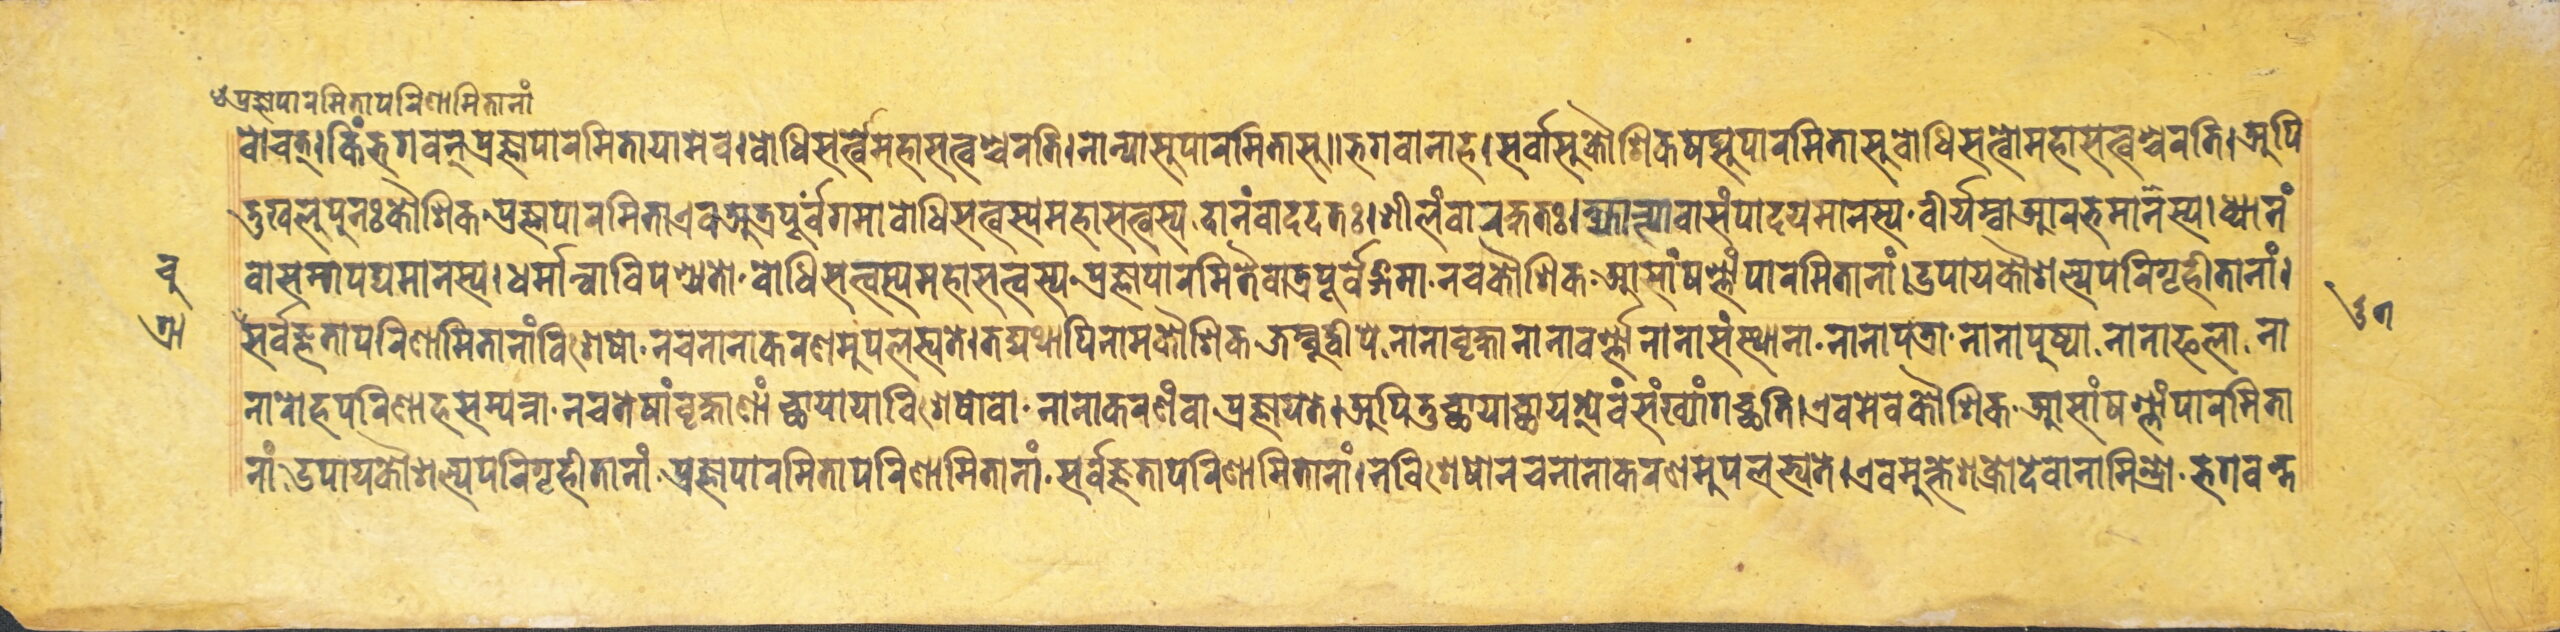 ४ प्रज्ञापारमितापरिणामितानां
वोचत्। किं भगवन् प्रज्ञापारमितायामेव। बोधिसत्त्वोमहासत्वश्चरति। नान्यासुपारमितासु॥ भगवानाह। सर्वासुकौशिकषट्सुपारमितासुबोधिसत्वोमहासत्वश्चरति। अपि
तुखलुपुनः कौशिक प्रज्ञापारमिताएवअत्रपूर्वंगमाबोधिसत्वस्यमहासत्वस्य दानंवाददतः। शीलंवारक्षतः। क्षान्त्यावासंपादयमानस्य वीर्यम्वाआरभमानस्य। ध्यानं
वासमापद्यमानस्य। धर्मान्वाविपश्यतो बोधिसत्वस्यमहासत्वस्य प्रज्ञापारमितैवात्रपूर्वङ्गमा नचकौशिक आसांषण्णांपारमितानां। उपायकौशल्यपरिगृहीतानां।
चु
सर्वज्ञतापरिणामितानांविशेषो नचनानाकरणमुपलभ्यते। तद्यथापिनामकौशिक जम्बुद्वीपे नानावृक्षानानावर्ण्णा नानासंस्थाना नानापत्रा नानापुष्पा नानाफला ना
नारोहपरिणाहसम्पन्ना नचतेषांवृक्षाणां च्छायायाविशेषोवा नानाकरणंवा प्रज्ञायते। अपितुच्छायाच्छायेत्येवंसंख्यांगच्छति। एवमेवकौशिक आसांषण्णांपारमिता
नां उपायकौशल्यपरिगृहीतानां प्रज्ञापारमितापरिणामितानां सर्वज्ञतापरिणामितानां। नविशेषोनचनानाकरणमुपलभ्यते। एवमुक्तेशक्रोदेवानामिन्द्रो भगवन्त